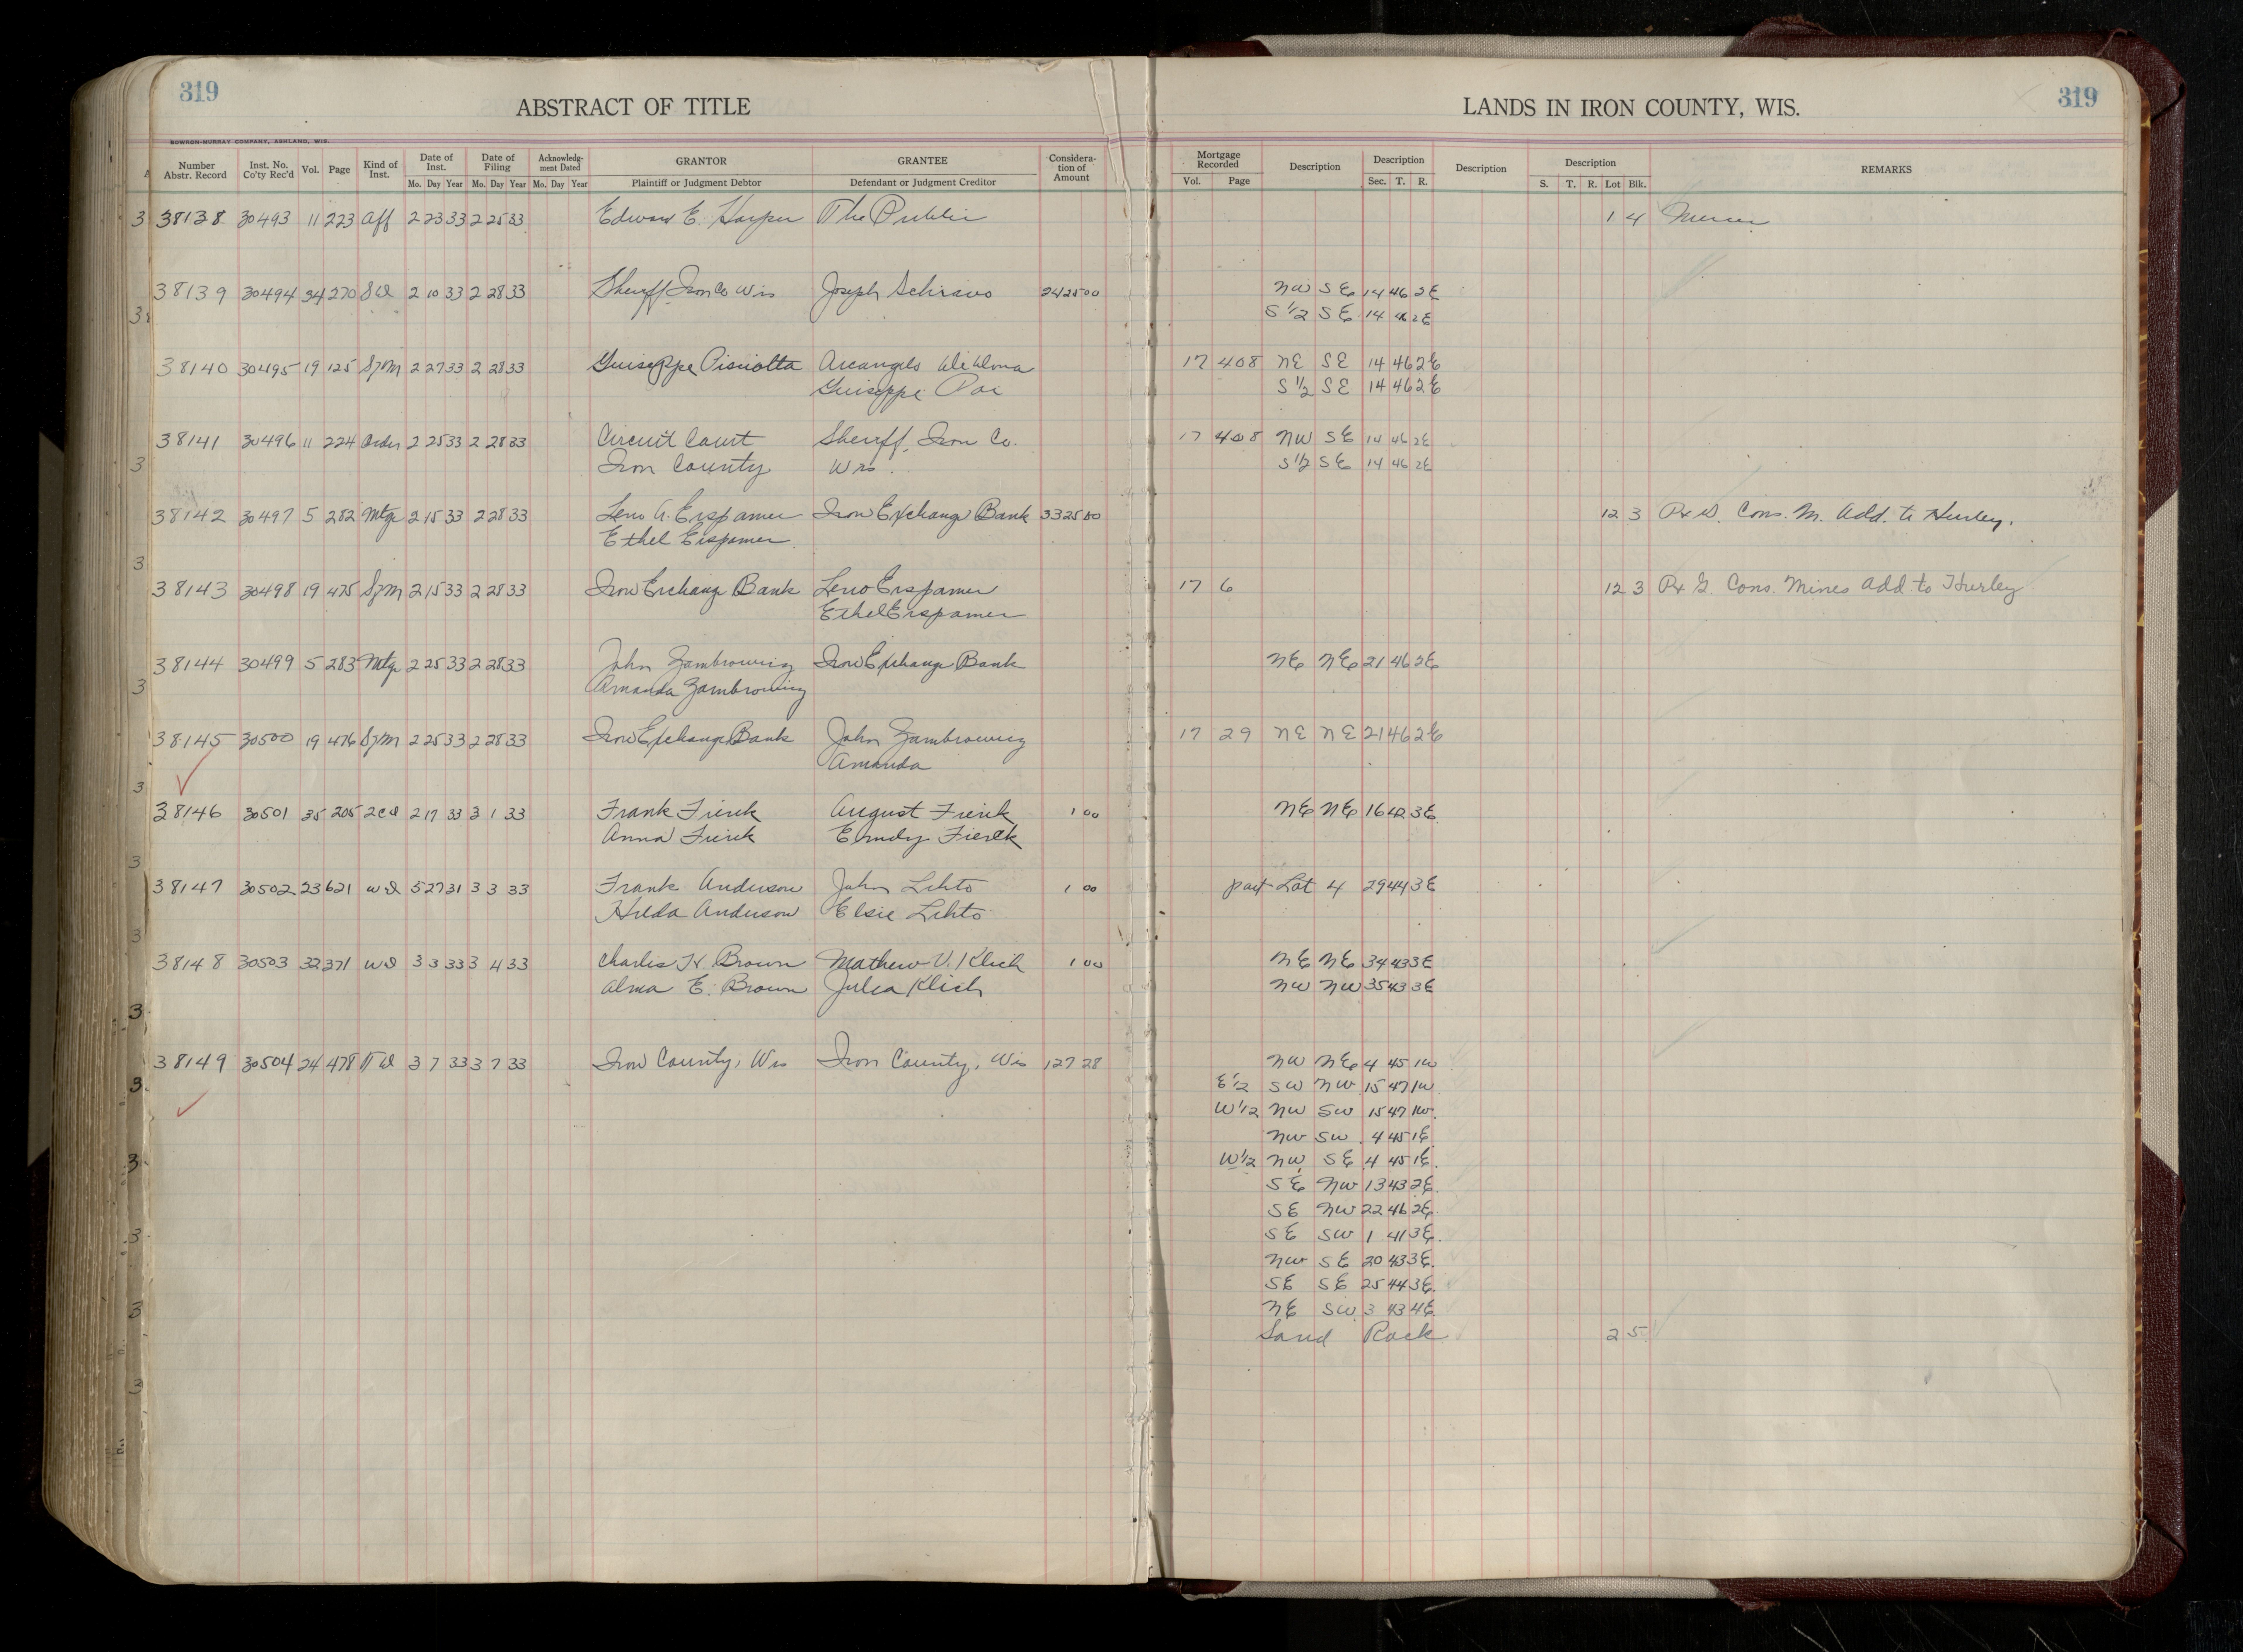 319
ABSTRACT OF TITLE
LANDS IN IRON COUNTY, WIS.
319
BOWRON-MURRAY COMPANY, ASHLAND, WIS.
Number Abstr. Record Inst. No. Co'ty Rec'd Vol. Page Kind of Inst. Date of Inst. Date of Filing Acknowledg-ment Dated GRANTOR GRANTEE Considera-tion of Amount Mortgage Recorded Description Description Description Description REMARKS
Mo. Day Year Mo. Day Year Mo. Day Year Plaintiff or Judgment Debtor Defendant or Judgment Creditor Vol. Page Sec. T. R. S. T. R. Lot Blk.
38138 30493 11 223 Aff 2 23 33 2 25 33 Edward E. Harper The Public 1 4 Mercer
38139 30494 34 270 SD 2 10 33 2 28 33 Sheriff, Iron Co Wis Joseph Schiavo 2425 00 NW SE 14 46 2E
S 1/2 SE 14 46 2E
38140 30495 19 125 SM 2 27 33 2 28 33 Guiseppe Arcangelo 17 408 NE SE 14 46 2E
Guiseppe S 1/2 SE 14 46 2E
38141 30496 11 224 Order 2 25 33 2 28 33 Circuit Court Sheriff, Iron Co. 17 408 NW SE 14 46 2E
Iron County Wis. S 1/2 SE 14 46 2E
38142 30497 5 282 Mtge 2 15 33 2 28 33 Leno A. Erspamer Iron Exchange Bank 3325 00 12 3 Cons. M. Add. to Hurley.
Ethel Erspamer
38143 30498 19 475 2 15 33 2 28 33 Iron Exchange Bank Leno Erspamer 17 6 12 3 Cons. Mines Add to Hurley
Ethel Erspamer
38144 30499 5 283 Mtge 2 25 33 2 28 33 John Zambrowicz Iron Exchange Bank NE NE 21 46 2E
Amanda Zambrowicz
38145 30500 19 476 2 25 33 2 28 33 Iron Exchange Bank John Zambrowicz 17 29 NE NE 21 46 2E
Amanda
38146 30501 35 205 2CD 2 17 33 3 1 33 Frank Fierek August Fierek 1 00 NE NE 16 42 3E
Anna Fierek Emily Fierek
38147 30502 23 621 WD 5 27 31 3 3 33 Frank Anderson John Lehto 1 00 part Lot 4 29 44 3E
Hilda Anderson Elsie Lehto
38148 30503 32 371 WD 3 3 33 3 4 33 Charles H. Brown Mathew V. Klich 1 00 NE NE 34 43 3E
Alma E. Brown Julia Klich NW NW 35 43 3E
38149 30504 24 478 TD 3 7 33 3 7 33 Iron County, Wis Iron County, Wis 127 28 NW NE 4 45 1W
E 1/2 SW NW 15 47 1W
W 1/2 NW SW 15 47 1W
NW SW 4 45 1E
W 1/2 NW SE 4 45 1E
SE NW 13 43 2E
SE NW 22 46 2E
SE SW 1 41 3E
NW SE 20 43 3E
SE SE 25 44 3E
NE SW 3 43 4E
Sand Rock 2 5